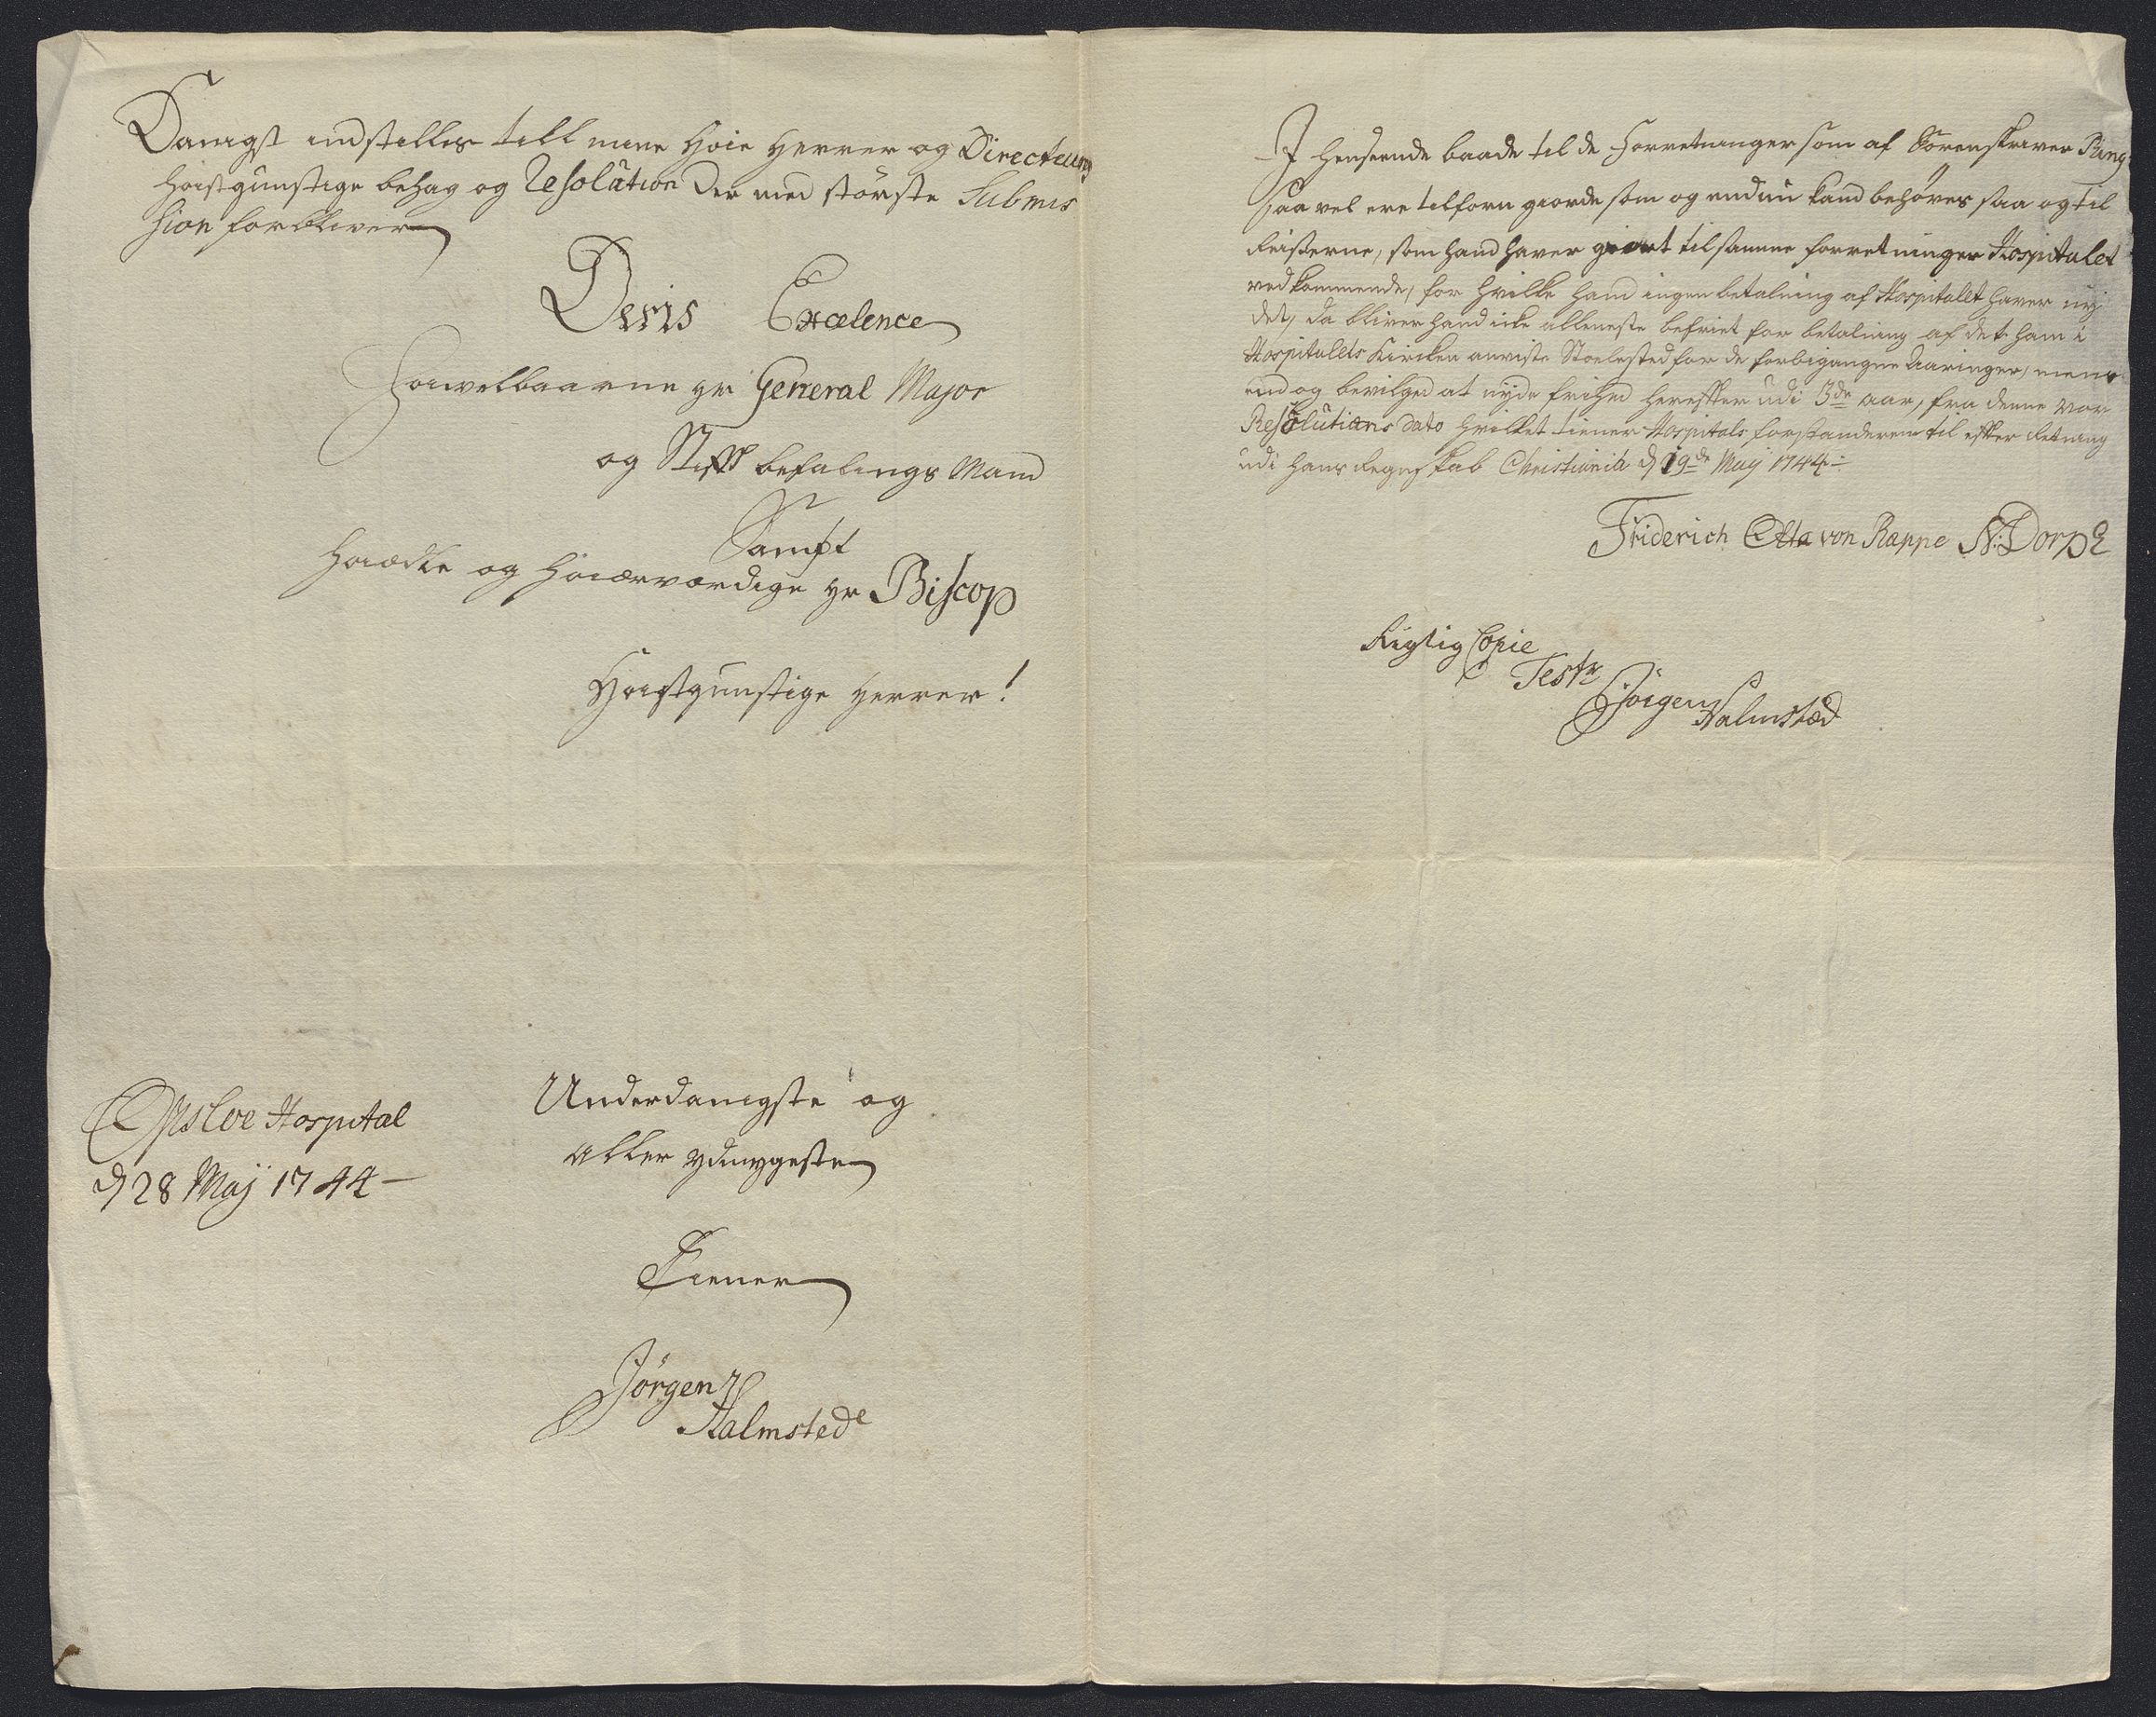 Danigst indstilles till mine Høie Herrer og Directeurs
høistgunstige behag og Resolution Der med største Submis
sion forbliver
Deris Excelence
Høivelbaarne Hr General Major
og Stift befalings Mand
Sampt
Høiædle og Høiærværdige Hr Biscop
Høistgunstige Herrer!
Opsloe Hospital
d 28 Maij 1744
Underdanigste og
aller ydmygeste
Tiener
Jörgen
Halmsted
I henseende baade til de Forretninger som af Sorenskriver
saa vel ere tilforn giorde som og endnu kand behøves saa og til
Reiserne, som hand haver giort til samme forretninger Hospitalet
vedkommende, for hvilke hand ingen betalning af Hospitalet haver nÿ
det, da bliver hand icke alleneste befriet for betalning af det ham i
Hospitalets Kircken anviste Stoelested for de forbigangne Aaringer, mens
end og bevilged at nyde frihed herefter udi 3de aar, fra denne vor
Resolutions dato hvilket tiener Hospitals forstanderen til efterretning
udi hans Regnskab Christiania d 19de Maij 1744
Friderich Otto von Rappe N: Dorph
Rigtig Copie
Testr
Jörgen Halmsted